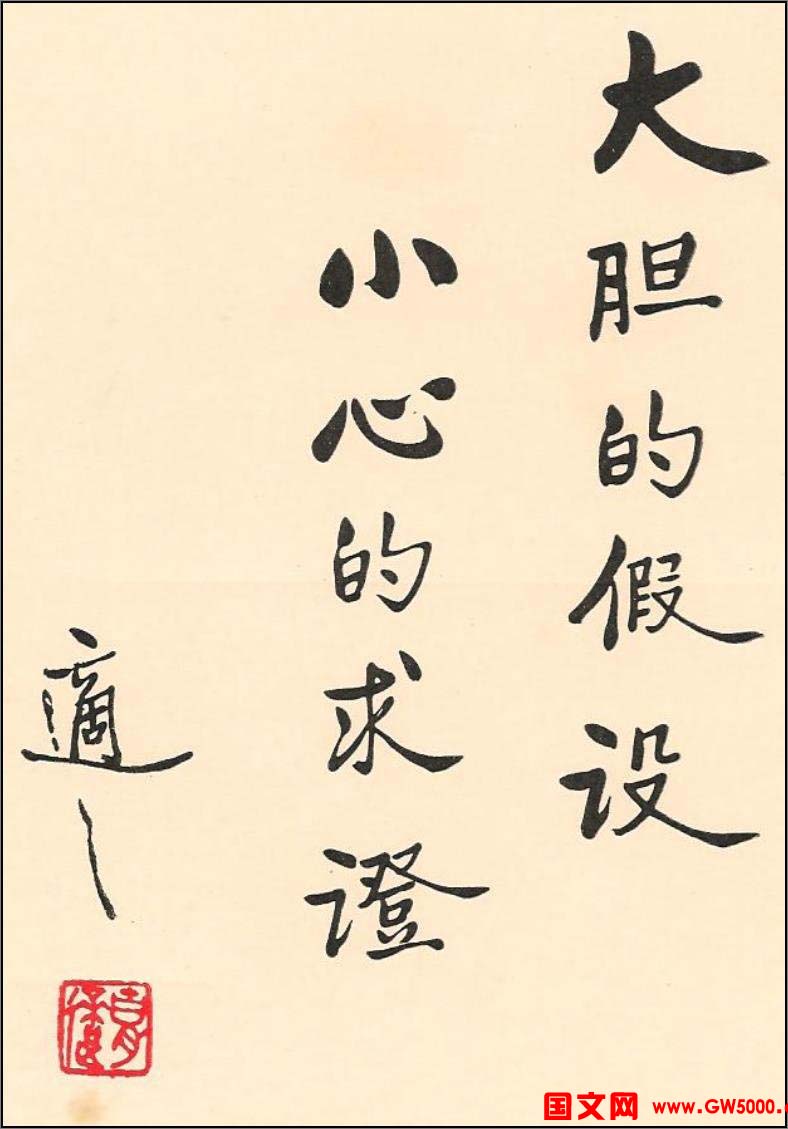 大胆的假设
小心的求證
適之
国文网 www.GW5000.